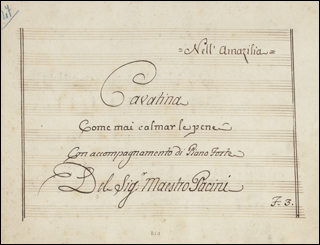 =Nell' Amazilia=
Cavatina
Come mai calmar le pene
Con accompagnamento di Piano Forte
Del Sig.r Maestro Pacini
F. 3.